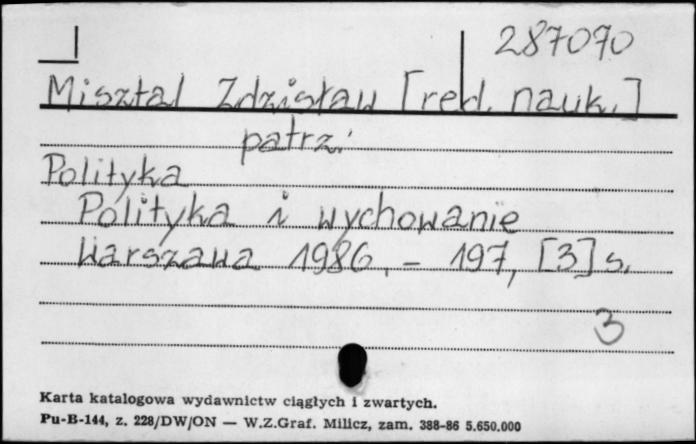 287070
Misztal Zdzisław [red. nauk.]
patrz:
Polityka
Polityka i wychowanie
Warszawa 1986. – 197, [3] s.
3
Karta katalogowa wydawnictw ciągłych i zwartych.
Pu-B-144, z. 228/DW/ON — W.Z.Graf. Milicz, zam. 388-86 5.650.000